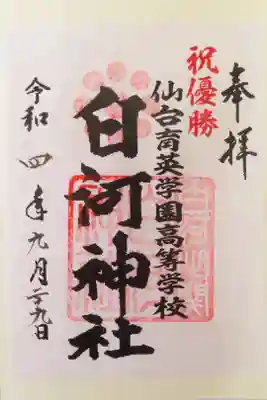 奉拝
祝優勝
仙台育英学園高等学校
白河神社
令和四年九月二九日